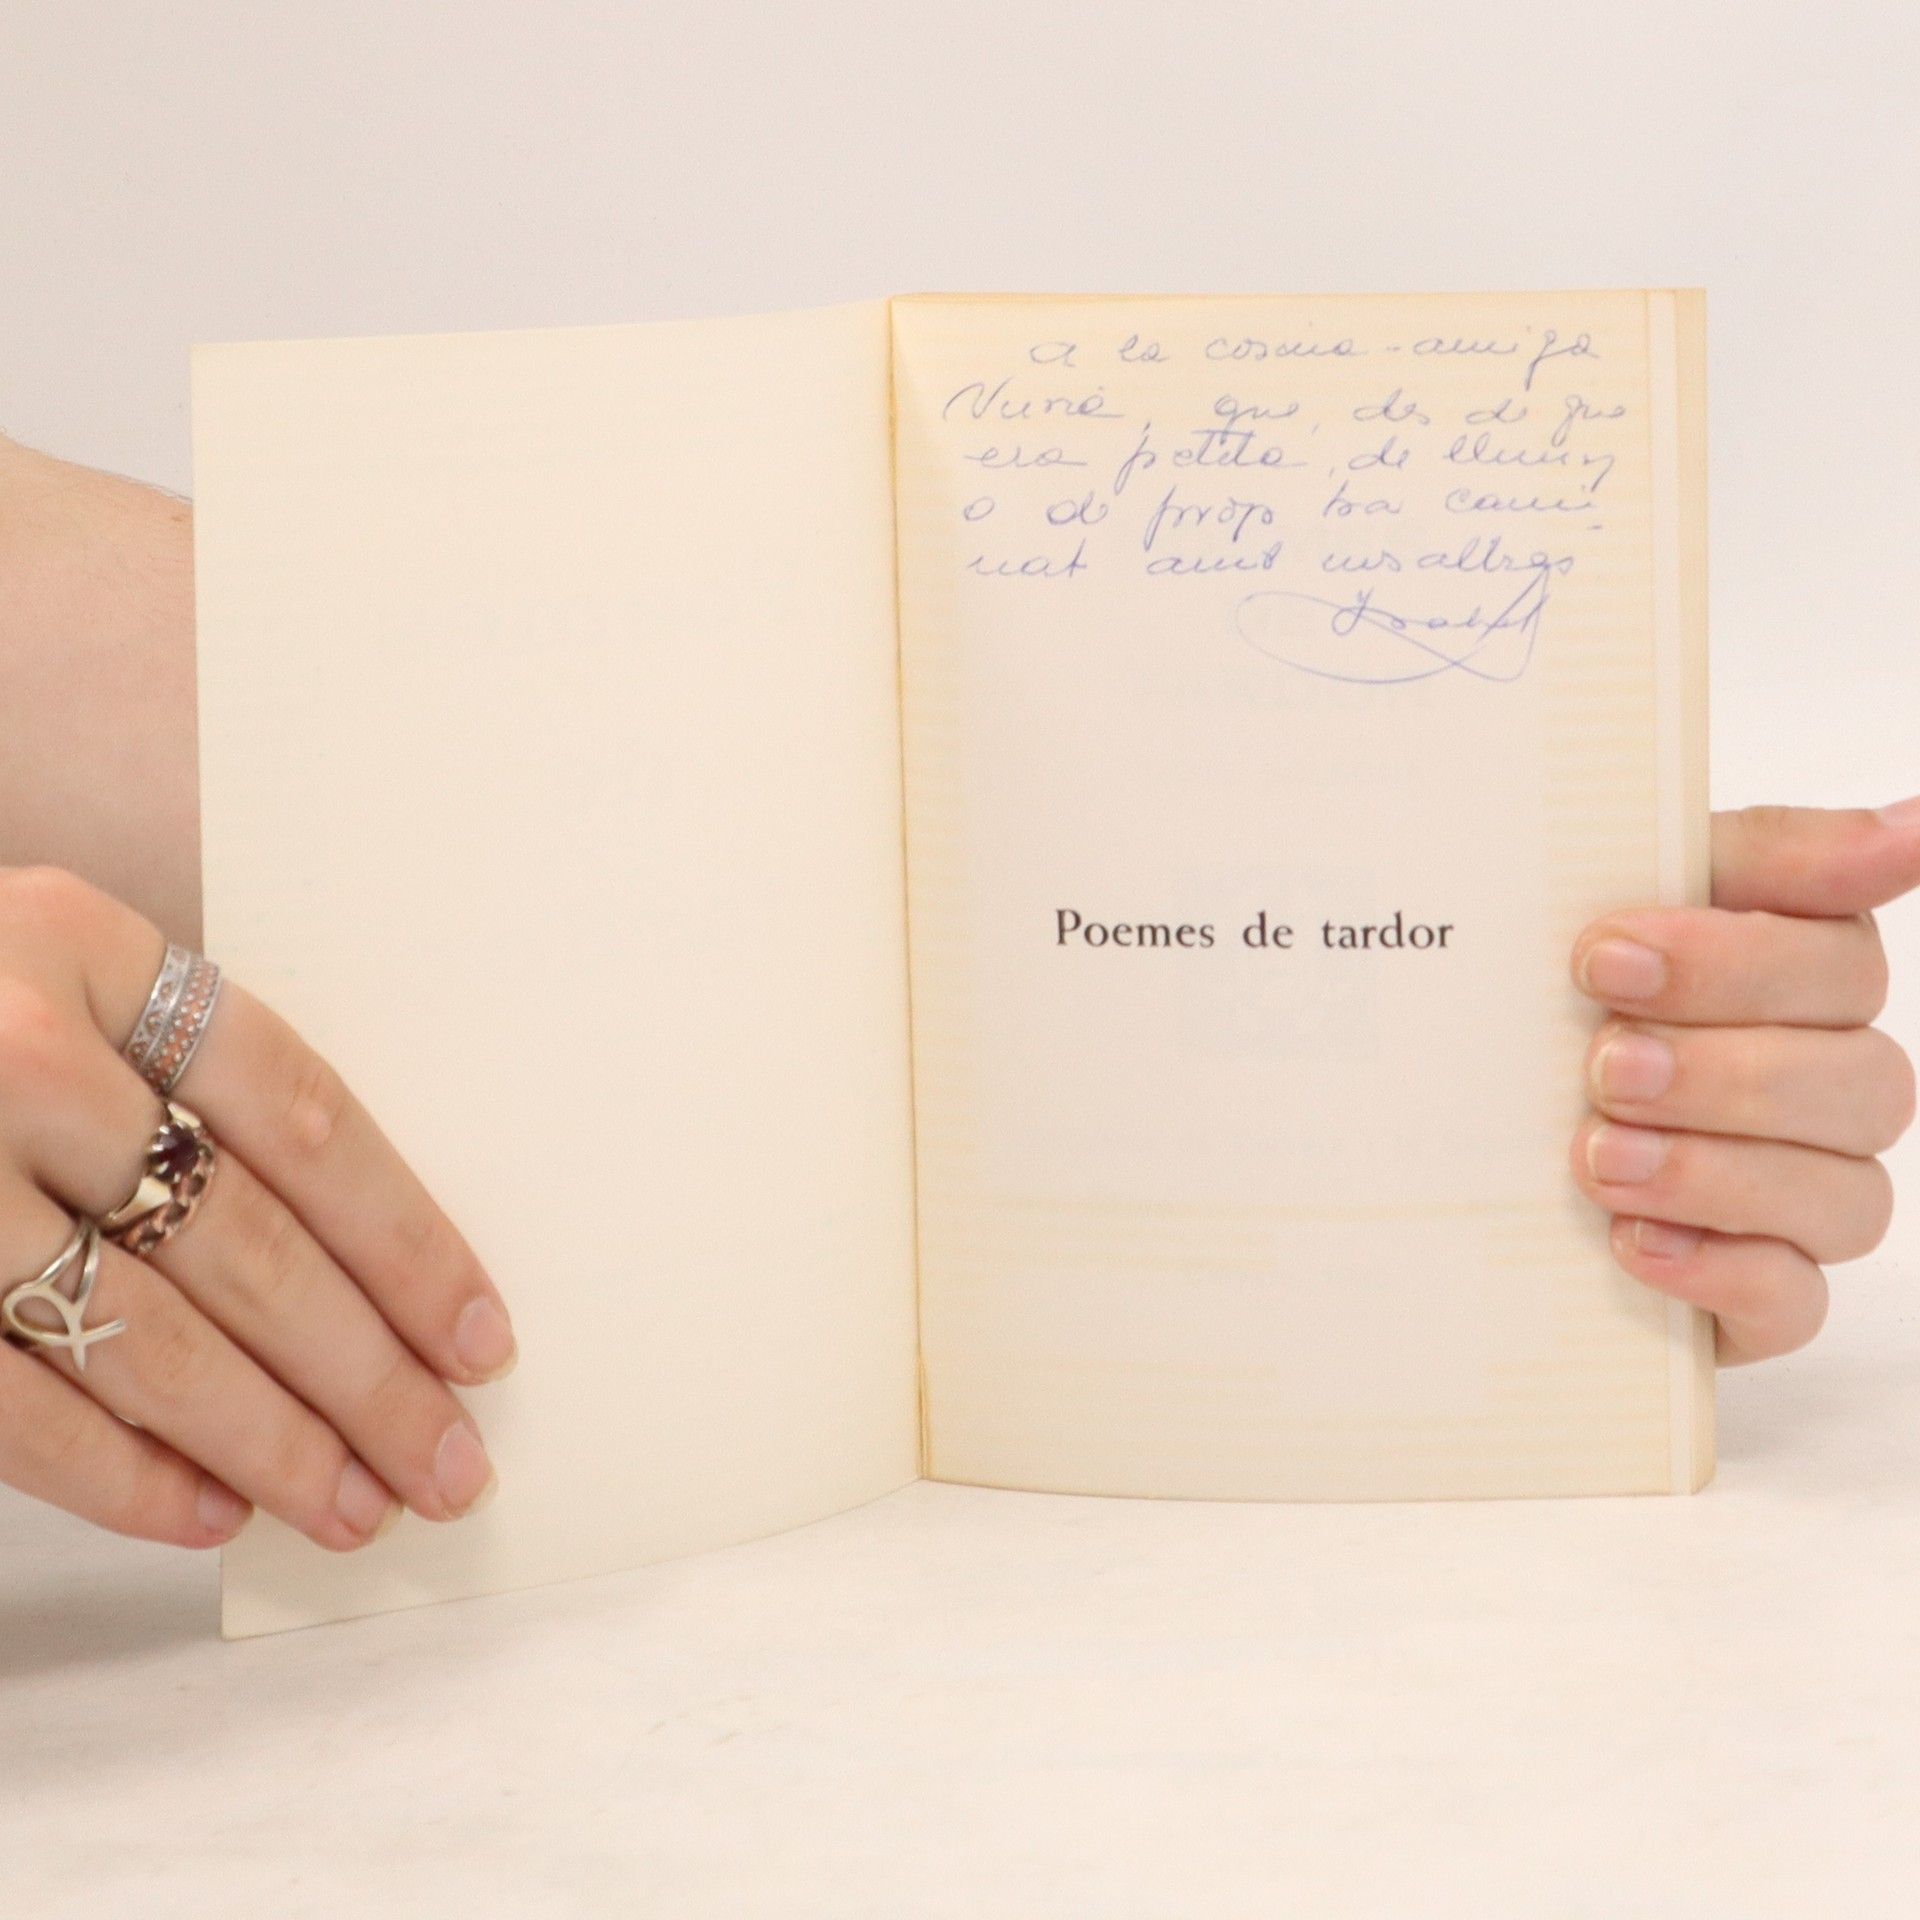 a la cosina-amiga
Nuria, que, des de que
era petita, de lluny
o de prop ha cami-
nat amb nosaltres
Isabel
Poemes de tardor